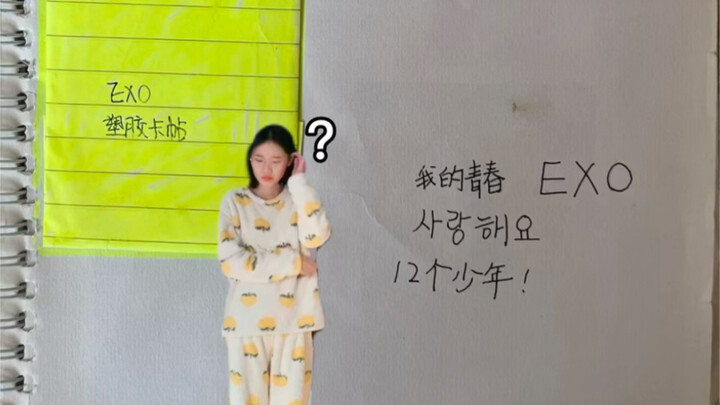 EXO
塑胶卡帖
?
我的青春 EXO
사랑해요
12个少年!